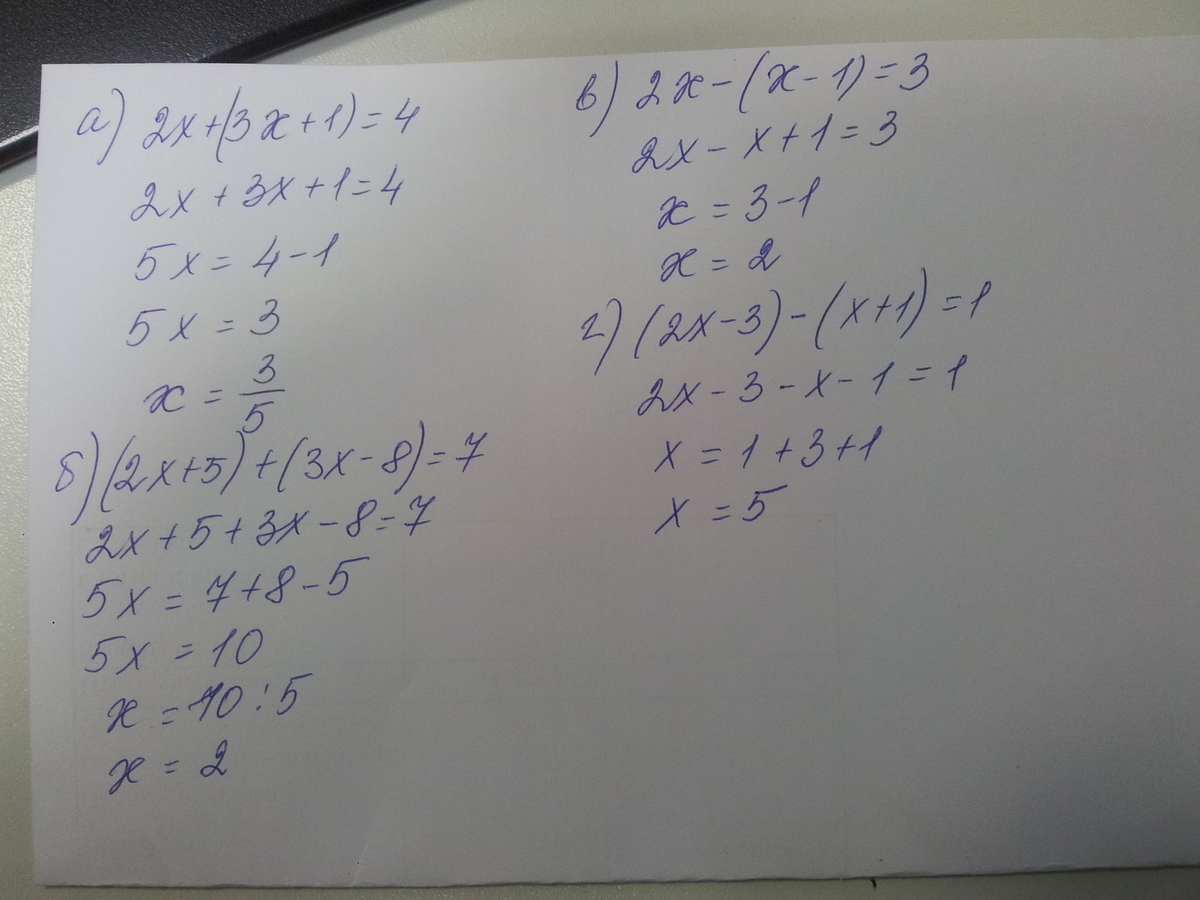 а) 2x+(3x+1)=4
2x+3x+1=4
5x=4-1
5x=3
x=3/5
б) (2x+5)+(3x-8)=7
2x+5+3x-8=7
5x=7+8-5
5x=10
x=10:5
x=2
в) 2x-(x-1)=3
2x-x+1=3
x=3-1
x=2
г) (2x-3)-(x+1)=1
2x-3-x-1=1
x=1+3+1
x=5